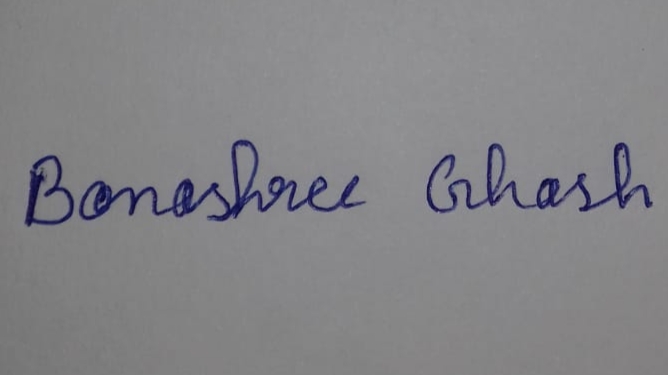 Banashree Ghash